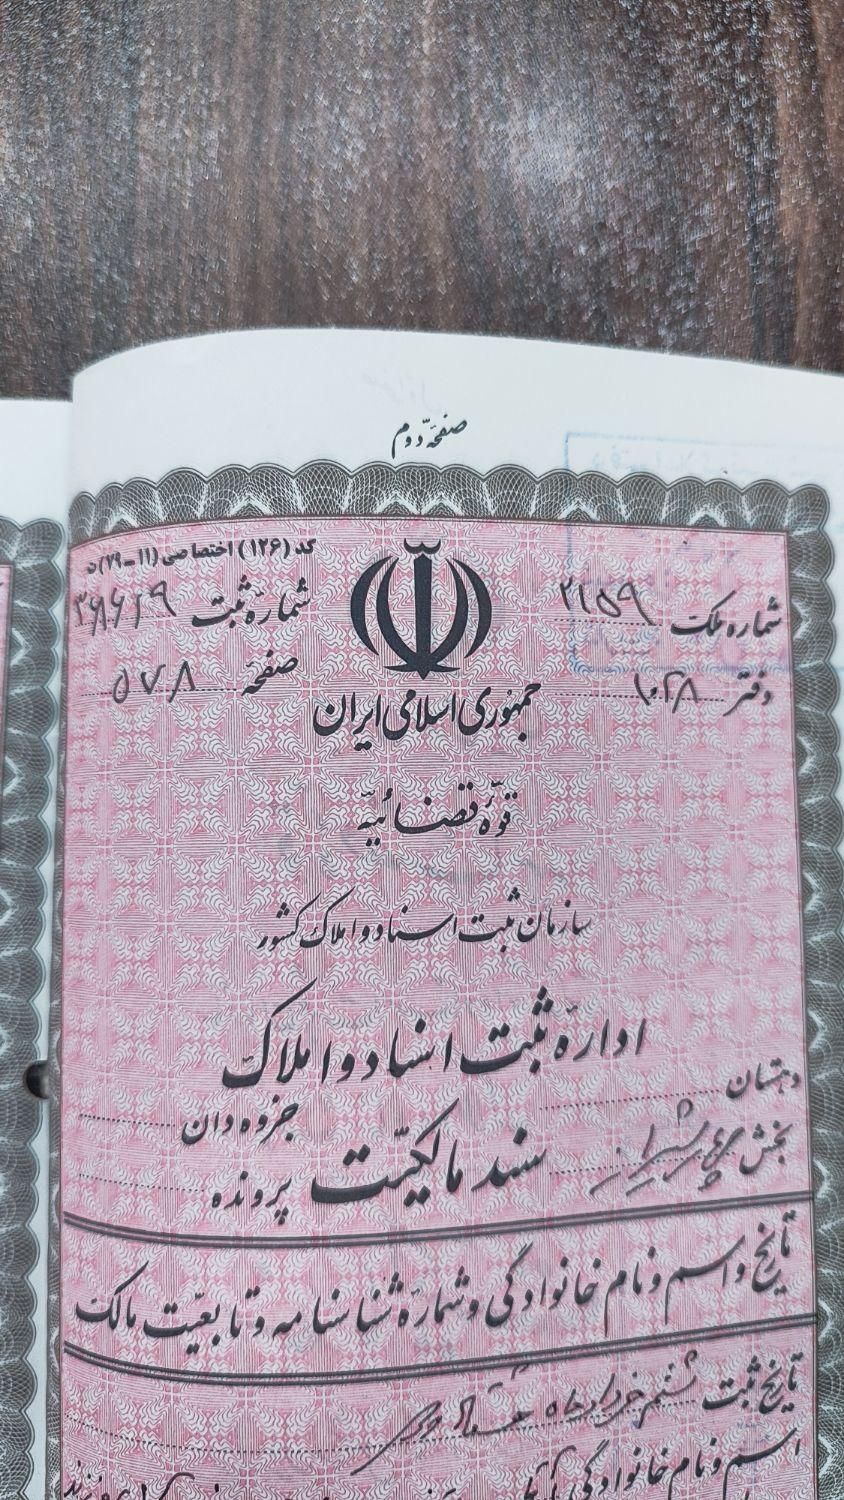 صفحه دوم
کد (۱۲۶) اختصاصی (۱۱-۲۹) ن
شماره ملک ۲۱۵۹ شماره ثبت
دفتر ۱۰۲۸ صفحه ۵۷۸
جمهوری اسلامی ایران
قوه قضائیه
سازمان ثبت اسناد و املاک کشور
اداره ثبت اسناد و املاک
دهستان جزوه دان
بخش شیراز سند مالکیت پرونده
تاریخ و اسم و نام خانوادگی و شماره شناسنامه و تابعیت مالک
تاریخ ثبت ششم خرداد ماه هشتاد و
اسم و نام خانوادگی